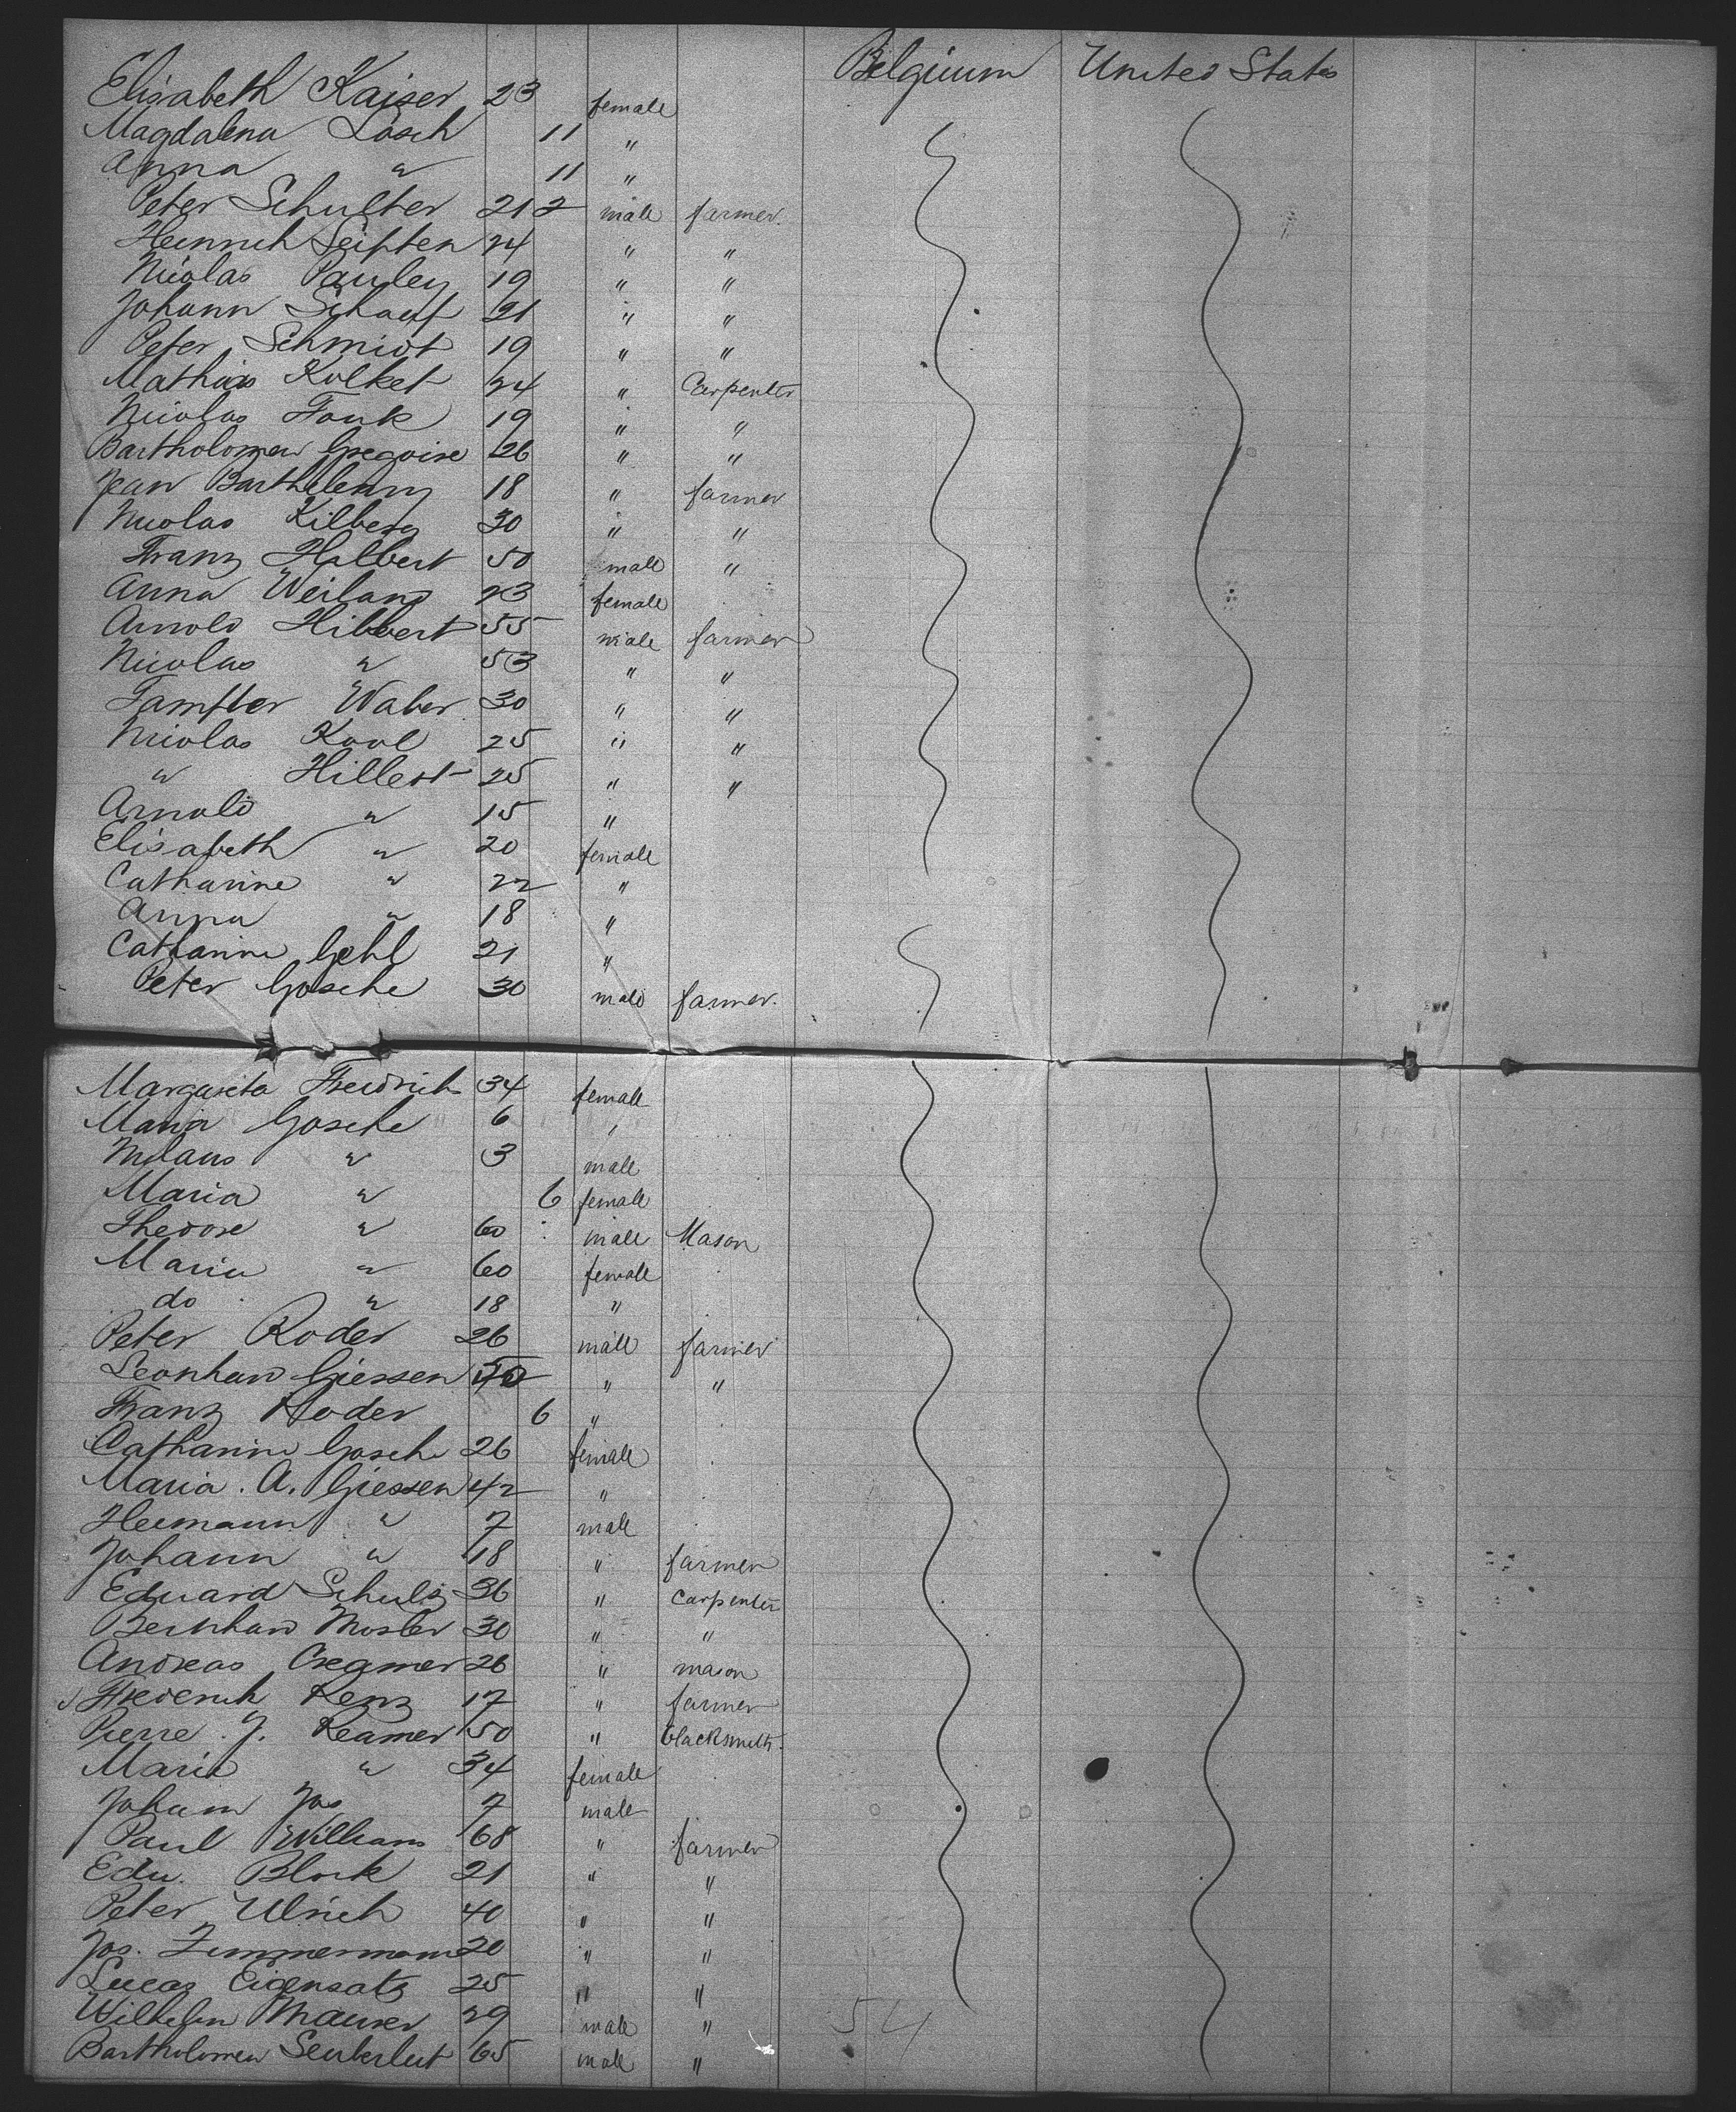 Belgium United States
Elisabeth Kaiser 23 female
Magdalena Lösch 11 "
Anna " 11 "
Peter Schulter 21 2 male farmer
Heinrich Seipten 24 " "
Nicolas Pauley 19 " "
Johann Schaef 21 " "
Peter Schmidt 19 " "
Mathias Kolket 24 " Carpenter
Nicolas Fonk 19 " "
Bartholomew Gregoire 26 " "
Jean Barthelemy 18 " farmer
Nicolas Kilberg 30 " "
Franz Halbert 50 male "
Anna Weiland 23 female
Arnold Hilbert 55 male farmer
Nicolas " 53 " "
Waber 30 " "
Nicolas Koul 25 " "
" Hillert 25 " "
Arnold " 15 "
Elisabeth " 20 female
Catharine " 22 "
Anna " 18 "
Catharine Gehl 21 "
Peter Gosche 30 male farmer.
Margareta Freidrich 34 female
Maria Gosche 6 "
" 3 male
Maria " 6 female
Theodore " 60 male Mason
Maria " 60 female
do " 18 "
Peter Roder 26 male farmer
Leonhard Giessen " "
Franz Roder 6 "
Catharine Gosche 26 female
Maria . A. Giessen 42 "
Hermann " 7 male
Johann " 18 " farmer
Eduard Schulz 36 " Carpenter
Bernhard Mosler 30 " "
Andreas Cregmer 26 " mason
Frederich Renz 17 " farmer
Pierre . J. Reamer 50 " blacksmith.
Maria " 34 female
Johann Jos 7 male
Paul William 68 " farmer
Edu. Block 21 " "
Peter Ulrich 40 " "
Jos. Zimmermann 20 " "
Lucas Eigensatz 25 " "
Wilhelm Maurer 29 male " 54
Bartholomew Seuberlut 65 male "